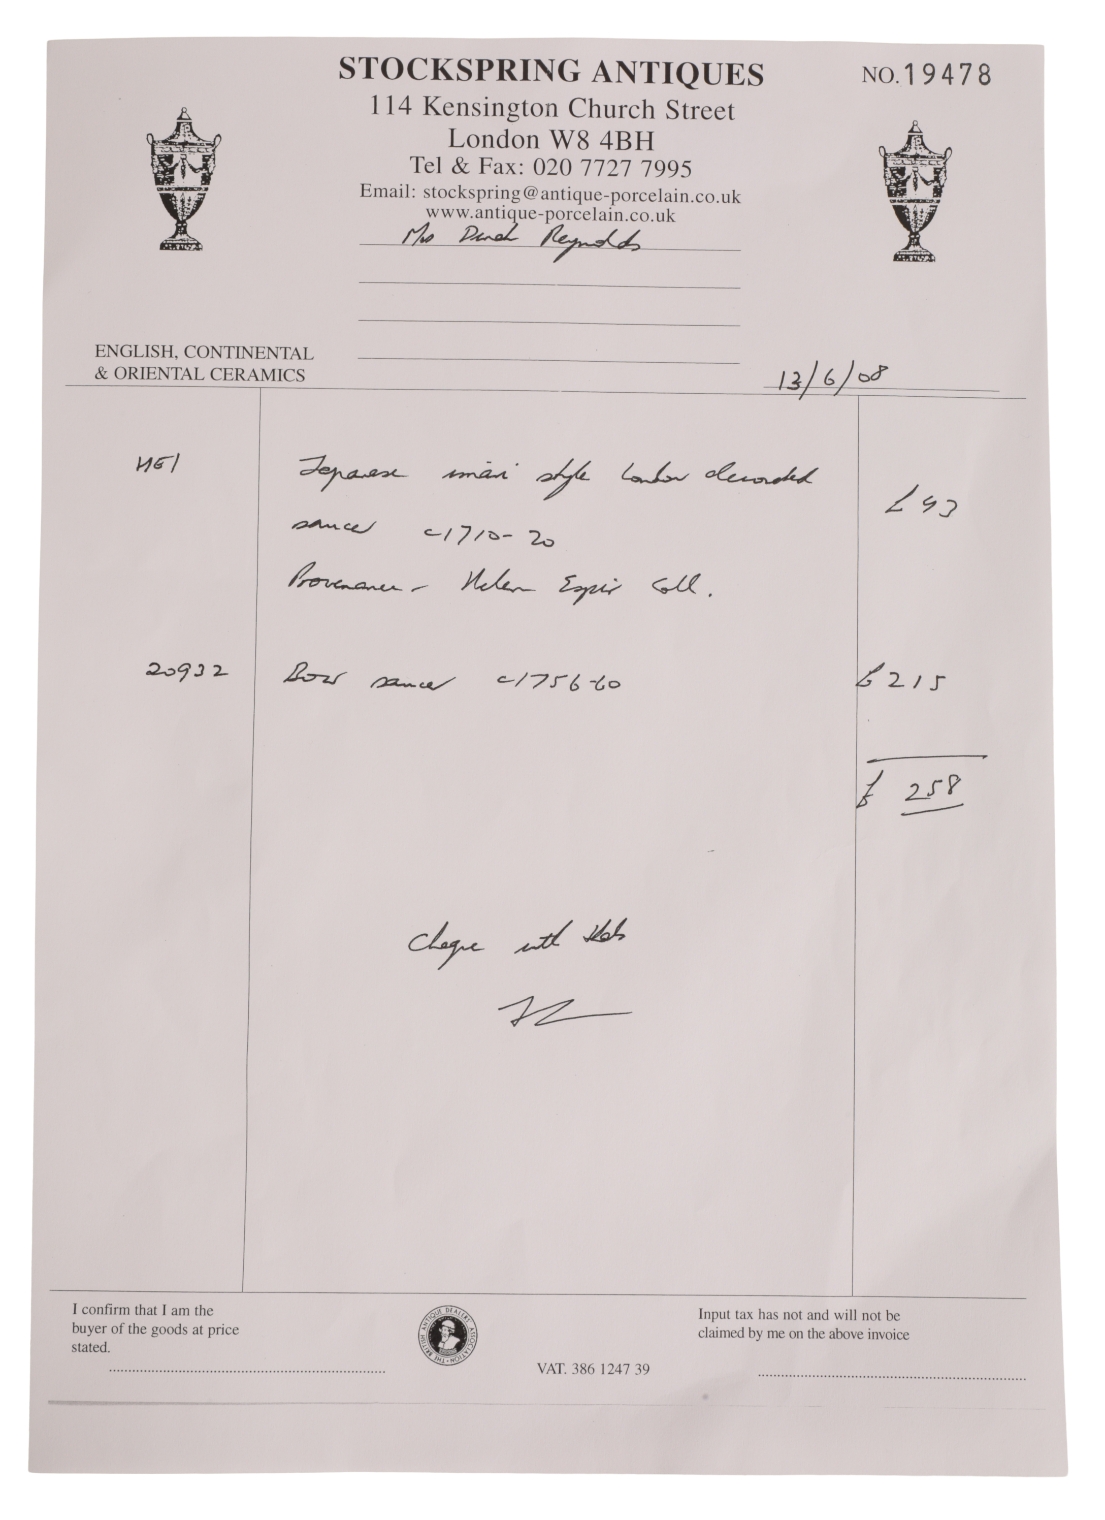 STOCKSPRING ANTIQUES
NO. 19478
114 Kensington Church Street
London W8 4BH
Tel & Fax: 020 7727 7995
Email: stockspring@antique-porcelain.co.uk
www.antique-porcelain.co.uk
Reynolds
ENGLISH, CONTINENTAL
& ORIENTAL CERAMICS
13/6/08
HE1 Japanese imari style London decorated
saucer c1710-20 £43
Provenance - Helen Espir Coll.
20932 Bow saucer c1756-60 £215
£ 258
Cheque with
I confirm that I am the
buyer of the goods at price
stated.
THE BRITISH ANTIQUE DEALERS ASSOCIATION
VAT. 386 1247 39
Input tax has not and will not be
claimed by me on the above invoice